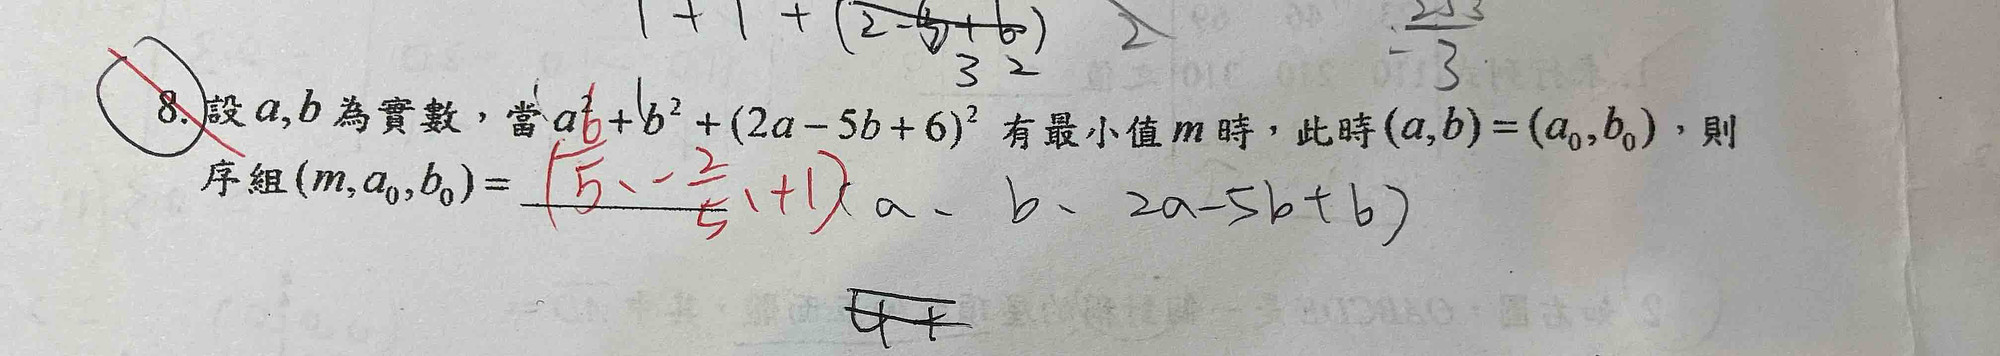 1 + 1 + (2-5+6)
3 2
3
8. 設 a, b 為實數,當 a² + b² + (2a − 5b + 6)² 有最小值 m 時,此時 (a, b) = (a₀, b₀),則
序組 (m, a₀, b₀) = (6/5、-2/5、+1) (a、b、2a-5b+6)